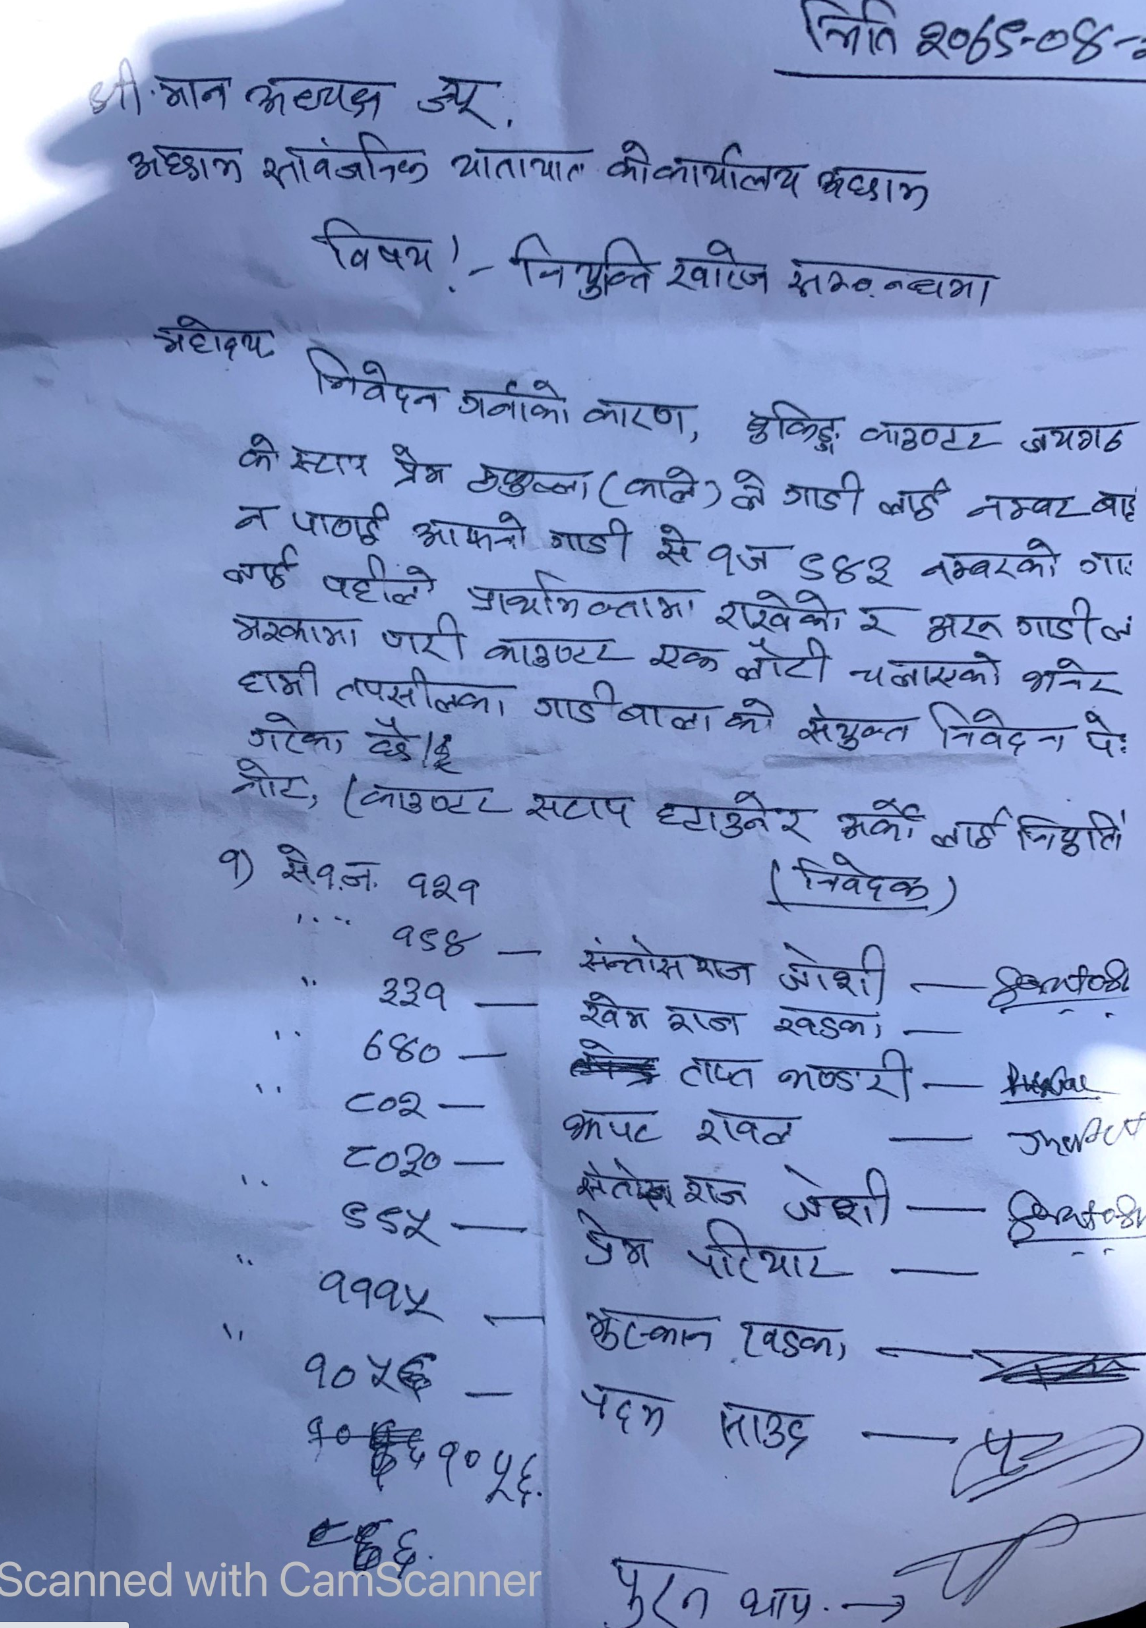 मिति २०७९-०४-
श्री.मान अध्यक्ष ज्यू.
अछाम सार्वजनिक यातायात को कार्यालय अछाम
विषय!- नियुक्ति खारेज सम्बन्धमा
महोदय
निवेदन गर्नाको कारण, बुकिङ्ग काउण्टर जयगढ
को स्टाप प्रेम (काले) ले गाडी लाई नम्बर बाई
न पाठाई आफ्नो गाडी से १ज ९४३ नम्बरको गा
लाई पहीले प्राथमिक्तामा राखेको र अरु गाडी ल
मरकामा पारी काउण्टर एक लौटी चलाएको भनेर
हामी तपसीलका गाडीबाला को संयुक्त निवेदन पे
गरेका छौ।
नोट, (काउण्टर स्टाप हटाउने र अर्को लाई नियुति
(निवेदक)
१) से१.ज. १२१
" १९४ — सन्तोस राज जोशी — Santosh
" ३३१ — खेम राज खडका —
" ६४० — ताप्त भण्डारी —
" ८०२ — झपट रावल —
८०३० — संतोस राज जोशी — Santosh
" ९९५ — प्रेम परियार —
" १११५ — मुस्कान खडका —
" १०५६ — पदम साउद —
१० १०५६.
६.
पुरन थापा. →
Scanned with CamScanner